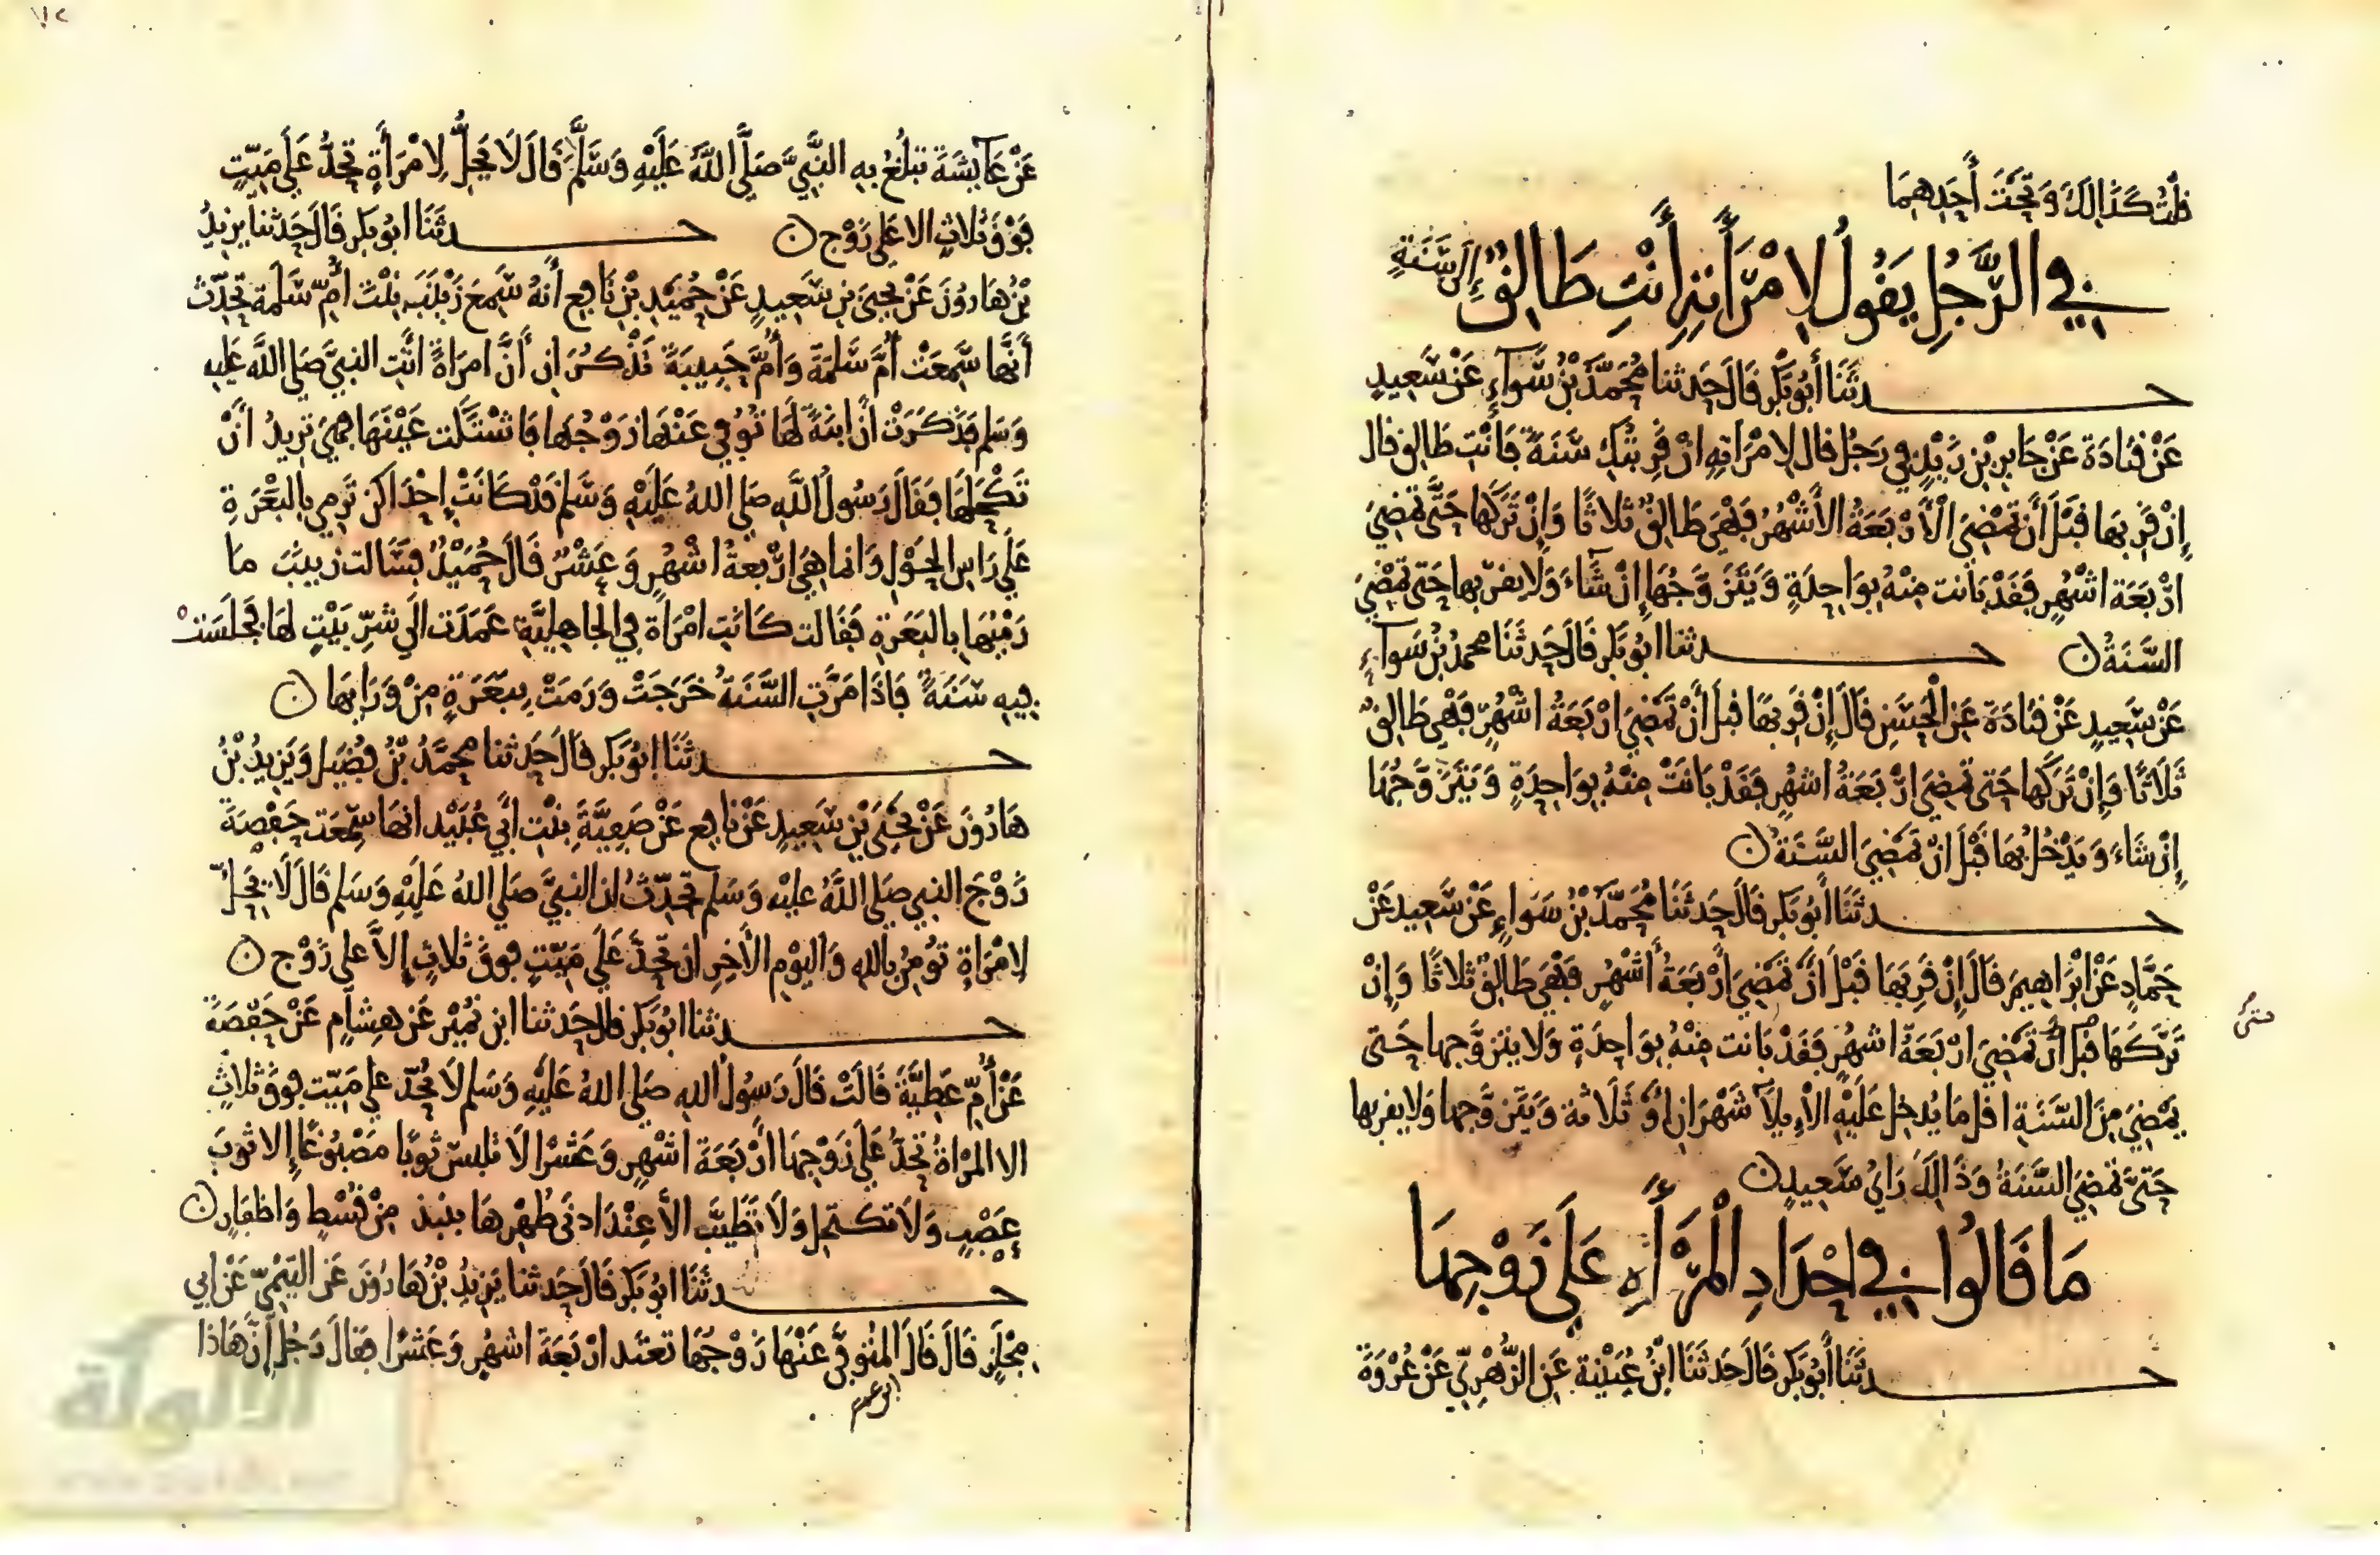 ظئت كذالك وتحت أحدهما
في الرَّجُلِ يَقُولُ لِامْرَأَتِهِ أَنْتِ طَالِقٌ إلى سَنَةٍ
حدثنا أبو بكر قال حدثنا محمد بن سواء عن سعيد
عن قتادة عن جابر بن زيد في رجل قال لامرأته ان قربتك سنة فأنت طالق قال
إن قربها قبل أن تمضي الأربعة الأشهر فهي طالق ثلاثا وإن تركها حتى تمضي
أربعة اشهر فقد بانت منه بواحدة ويتزوجها إن شاء ولا يقربها حتى تمضي
السنة ن حدثنا ابو بكر قال حدثنا محمد بن سواء
عن سعيد عن قتادة عن الحسن قال إن قربها قبل أن تمضي اربعة اشهر فهي طالق
ثلاثا فإن تركها حتى تمضي اربعة اشهر فقد بانت منه بواحدة ويتزوجها
إن شاء ويدخل بها قبل ان تمضي السنة ن
حدثنا أبو بكر قال حدثنا محمد بن سواء عن سعيد عن
حماد عن ابراهيم قال إن قربها قبل أن تمضي أربعة أشهر فهي طالق ثلاثا وإن
تركها قبل أن تمضي اربعة اشهر فقد بانت منه بواحدة ولا يتزوجها حتى
حتى
يمضي من السنة اقل ما يدخل عليه الإيلاء شهران أو ثلاثة ويتزوجها ولا يقربها
حتى تمضي السنة وذالك راي سعيد ن
مَا قَالُوا في إحْدَادِ الْمَرْأَةِ عَلَى زَوْجِهَا
حدثنا أبو بكر قال حدثنا ابن عيينة عن الزهري عن عروة
عن عائشة تبلغ به النبي صلى الله عليه وسلم قال لا يحل لامرأة تحد على ميت
فوق ثلاث الا على زوج ن حدثنا ابو بكر قال حدثنا يزيد
بن هارون عن يحيى بن سعيد عن حميد بن نافع أنه سمع زينب بنت أم سلمة تحدث
أنها سمعت أم سلمة وأم حبيبة تذكران أن امرأة أتت النبي صلى الله عليه
وسلم فذكرت أن ابنة لها توفي عنها زوجها فاشتكت عينها فهي تريد أن
تكحلها فقال رسول الله صلى الله عليه وسلم قد كانت إحداكن ترمي بالبعرة
على راس الحول وانما هي اربعة اشهر وعشر قال حميد فسالت زينب ما
رميها بالبعرة فقالت كانت امرأة في الجاهلية عمدت الى شر بيت لها فجلست
فيه سنة فاذا مرت السنة خرجت ورمت ببعرة من ورايها ن
حدثنا ابو بكر قال حدثنا محمد بن فضيل ويزيد بن
هارون عن يحيى بن سعيد عن نافع عن صفية بنت أبي عبيد انها سمعت حفصة
زوج النبي صلى الله عليه وسلم تحدث ان النبي صلى الله عليه وسلم قال لا يحل
لامرأة تؤمن بالله واليوم الآخر ان تحد على ميت فوق ثلاث إلا على زوج ن
حدثنا ابو بكر قال حدثنا ابن نمير عن هشام عن حفصة
عن أم عطية قالت قال رسول الله صلى الله عليه وسلم لا يحد على ميت فوق ثلاث
الا المرأة تحد على زوجها أربعة اشهر وعشرا لا تلبس ثوبا مصبوغا إلا ثوب
عصب ولا تكتحل ولا تطيب الا عند ادنى طهرها بنبذ من قسط واظفار ن
حدثنا ابو بكر قال حدثنا يزيد بن هارون عن التيمي عن ابي
مجلز قال قال المتوفى عنها زوجها تعتد اربعة اشهر وعشرا فقال رجل إن هاذا
الألوكة